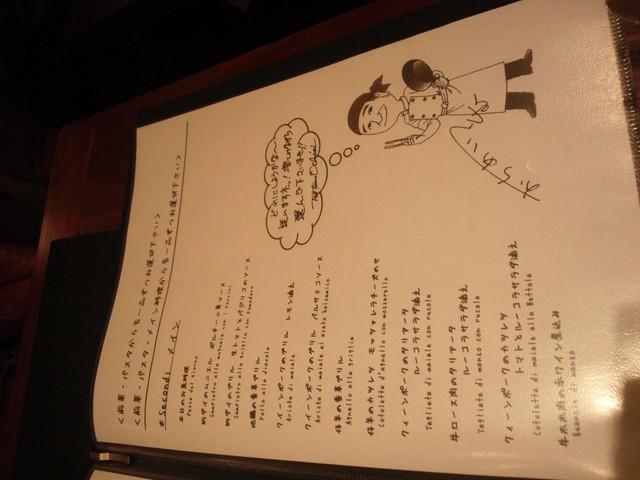 <前菜・パスタから各一品ずつお選び下さい>
<前菜・パスタ・メイン料理から各一品ずつお選び下さい>
*Secondi メイン
本日のお魚料理
Pesce del Giorno
鯛のグリル 生トマトとバジリコのソース
地鶏の香草グリル
Pollo alla diavola
クィーンポークのグリル レモン添え
Arista di maiale
クィーンポークのグリル バルサミコソース
Arista di maiale al aceto balsamico
仔羊の香草グリル
Agnello alla griglia
仔羊のカツレツ モッツァレラチーズのせ
Cotoletta d'agnello con mozzarella
クィーンポークのタリアータ
ルーコラサラダ添え
Tagliata di maiale con rucola
牛ロース肉のタリアータ
ルーコラサラダ添え
Tagliata di manzo con rucola
クィーンポークのカツレツ
トマトとルーコラサラダ添え
Cotoletta di maiale alla Bettola
牛ホホ肉の赤ワイン煮込み
Guancia di manzo
どれにしようかな〜
迷いますネッ!
選んで下さいませ!!